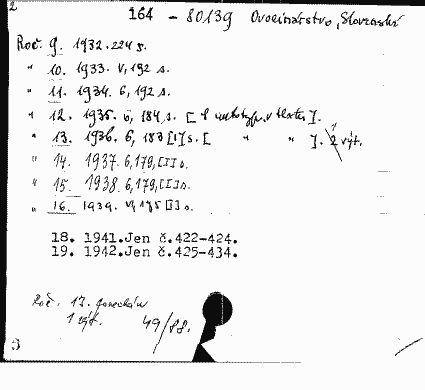 2
164 - 80139 Ovocinářstvo, Slovenské
Roč. 9. 1932. 224 s.
" 10. 1933. V, 192 s.
" 11. 1934. 6, 192 s.
" 12. 1935. 6, 184 s. [ v textu ].
" 13. 1936. 6, 183 [I] s. [ " " ]. 2 výt. 1
" 14. 1937. 6, 179, [I] s.
" 15. 1938. 6, 179, [I] s.
" 16. 1939. V, 175 [I] s.
18. 1941.Jen č.422-424.
19. 1942.Jen č.425-434.
Roč. 17.
1 výt. 49/88.